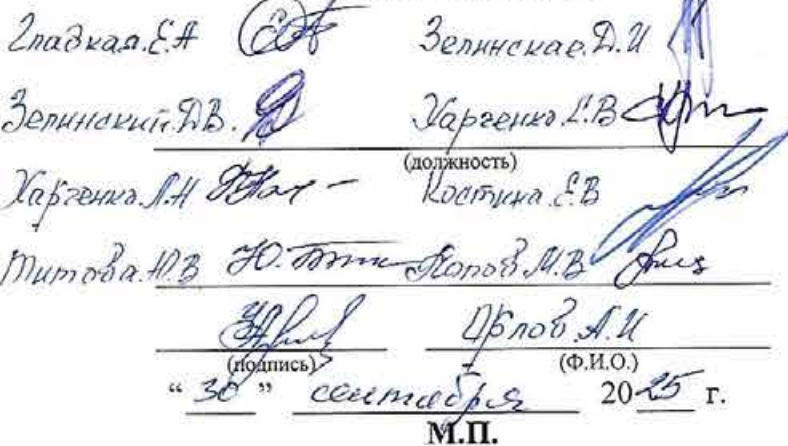 Гладкая.Е.А Зелинская.Д.И
Зелинский.Д.В. Харченко.Е.В
(должность)
Харченко.Л.Н Костина.Е.В
Титова.Ю.В Попов.М.В
Орлов.А.И
(подпись) (Ф.И.О.)
“ 30 ” сентября 2025 г.
М.П.